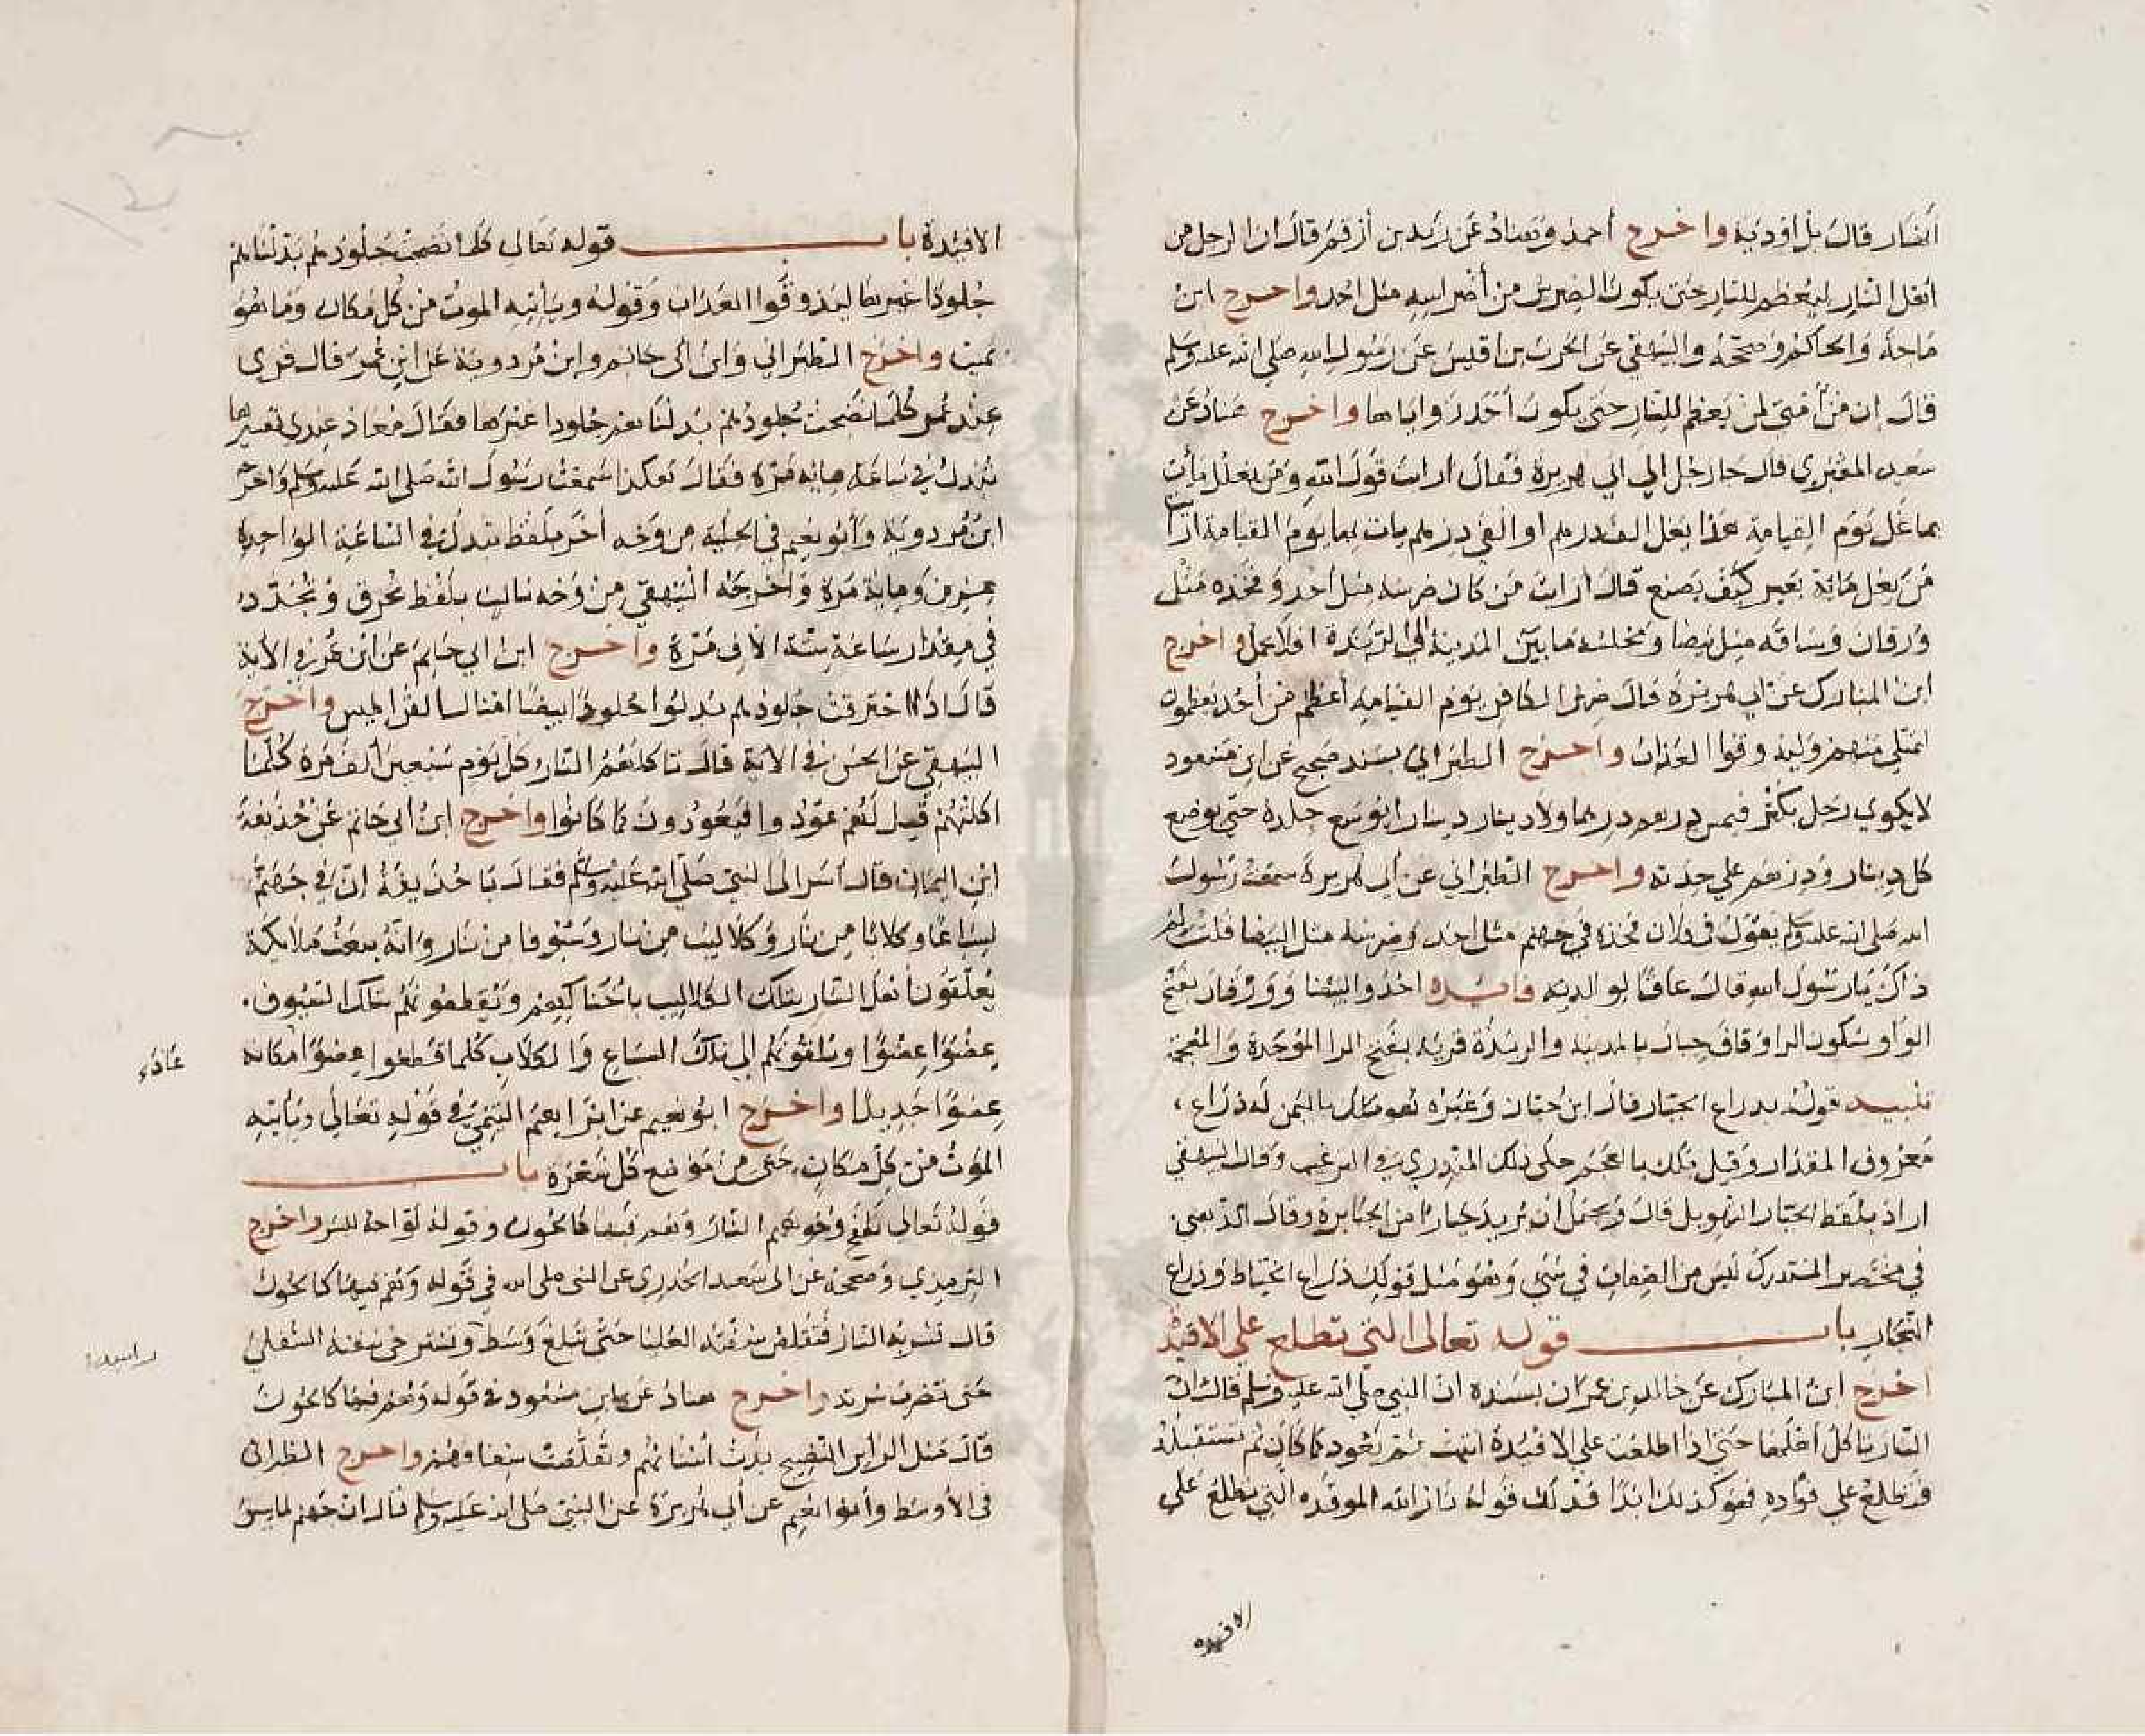 أنهار قال بل أودية واخرج أحمد وهناد عن زيد بن أرقم قال ان الرجل من
اهل النار ليعظم للنار حتى يكون الضرس من أضراسه مثل احد واخرج ابن
ماجة والحاكم وصححه والبيهقي عن الحرث بن اقيس عن رسول الله صلى الله عليه وسلم
قال إن من أمتي لمن يعظم للنار حتى يكون أحد زواياها واخرج هناد عن
سعيد المقبري قال جا رجل الي ابي هريرة فقال ارايت قول الله ومن يغلل يأت
بما غل يوم القيامة هذا يغل الف درهم او الفي درهم يات بها يوم القيامة ارايت
من يغل ماية بعير كيف يصنع قال ارايت من كان ضرسه مثل أحد وفخذه مثل
ورقان وساقه مثل بيضا ومجلسه ما بين المدينة الي الربذة افلا يحمل واخرج
ابن المبارك عن ابي هريرة قال ضرس الكافر يوم القيامة أعظم من أحد يعظمون
لتمتلي منهم وليذوقوا العذاب واخرج الطبراني بسند صحيح عن ابن مسعود
لا يكوي رجل بكنز فيمس درهم درهما ولا دينار دينارا يوسع جلده حتى يوضع
كل دينار ودرهم علي حدته واخرج الطبراني عن أبي هريرة سمعت رسول
الله صلى الله عليه وسلم يقول في فلان فخذه في جهنم مثل احد وضرسه مثل البيضا قلت لم
ذاك يا رسول الله قال عاقا لوالديه فايدة احد والبيضا وورقان بفتح
الواو وسكون الرا وقاف جبال بالمدينة والربذة قرية بفتح الرا الموحدة والمعجمة
تنبيه قوله بذراع الجبار قال ابن حبان وغيره هو ملك باليمن له ذراع
معروف المقدار وقيل ملك بالعجم حكى ذلك المنذري في الترغيب وقال البيهقي
اراد بلفظ الجبار التهويل قال ويحتمل ان يريد جبارا من الجبابرة وقال الذهبي
في مختصر المستدرك ليس من الصفات في شي وهو مثل قولك ذراع الخياط وذراع
النجار باب قوله تعالى التي تطلع على الافئدة
اخرج ابن المبارك عن خالد بن عمران بسنده ان النبي صلى الله عليه وسلم قال ان
النار تاكل أهلها حتى اذا اطلعت علي الافئدة انتهت ثم يعود كما كان ثم تستقبله
فتطلع علي فؤاده فهو كذلك ابدا فذلك قوله نار الله الموقدة التي تطلع علي
الافئدة
الافئدة باب قوله تعالى كلما نضجت جلودهم بدلناهم
جلودا غيرها ليذوقوا العذاب وقوله ويأتيه الموت من كل مكان وما هو
بميت واخرج الطبراني وابن ابي حاتم وابن مردوية عن ابن عمر قال قري
عند عمر كلما نضجت جلودهم بدلناهم جلودا غيرها فقال معاذ عندي تفسيرها
تبدل في ساعة ماية مرة فقال هكذا سمعت رسول الله صلى الله عليه وسلم واخرج
ابن مردوية وأبو نعيم في الحلية من وجه أخر بلفظ تبدل في الساعة الواحدة
عشرين وماية مرة وأخرجه البيهقي من وجه ثالث بلفظ تحرق وتجدد
في مقدار ساعة ستة الاف مرة واخرج ابن ابي حاتم عن ابن عمر في الأية
قال اذا احترقت جلودهم بدلوا جلودا بيضا امثال القراطيس واخرج
البيهقي عن الحسن في الاية قال تاكلهم النار كل يوم سبعين ألف مرة كلما
اكلتهم قيل لهم عودوا فيعودون كما كانوا واخرج ابن ابي حاتم عن حذيفة
ابن اليمان قال أسر الى النبي صلى الله عليه وسلم فقال يا حذيفة إن في جهنم
لسباعا وكلابا من نار وكلاليب من نار وسيوفا من نار وانه يبعث ملايكة
يعلقون أهل النار بتلك الكلاليب باحناكهم ويقطعونهم بتلك السيوف
عضوا عضوا ويلقونهم الي تلك السباع والكلاب كلما قطعوا عضوا مكانه
عاد
عضوا جديدا واخرج ابو نعيم عن ابراهيم التيمي في قوله تعالى ويأتيه
الموت من كل مكان حتى من موضع كل شعرة باب
قوله تعالى تلفح وجوههم النار وهم فيها كالحون وقوله لواحة للبشر واخرج
الترمذي وصححه عن ابي سعيد الخدري عن النبي صلى الله في قوله وهم فيها كالحون
قال تشويه النار فتقلص شفته العليا حتى تبلغ وسط وتسترخي شفته السفلى
راسه
حتى تضرب سرته واخرج هناد عن ابن مسعود في قوله وهم فيها كالحون
قال مثل الراس النضيج بدت أسنانهم وتقلصت شفاههم واخرج الطبراني
في الأوسط وأبو نعيم عن أبي هريرة عن النبي صلى الله عليه وسلم قال ان جهنم لما سيق